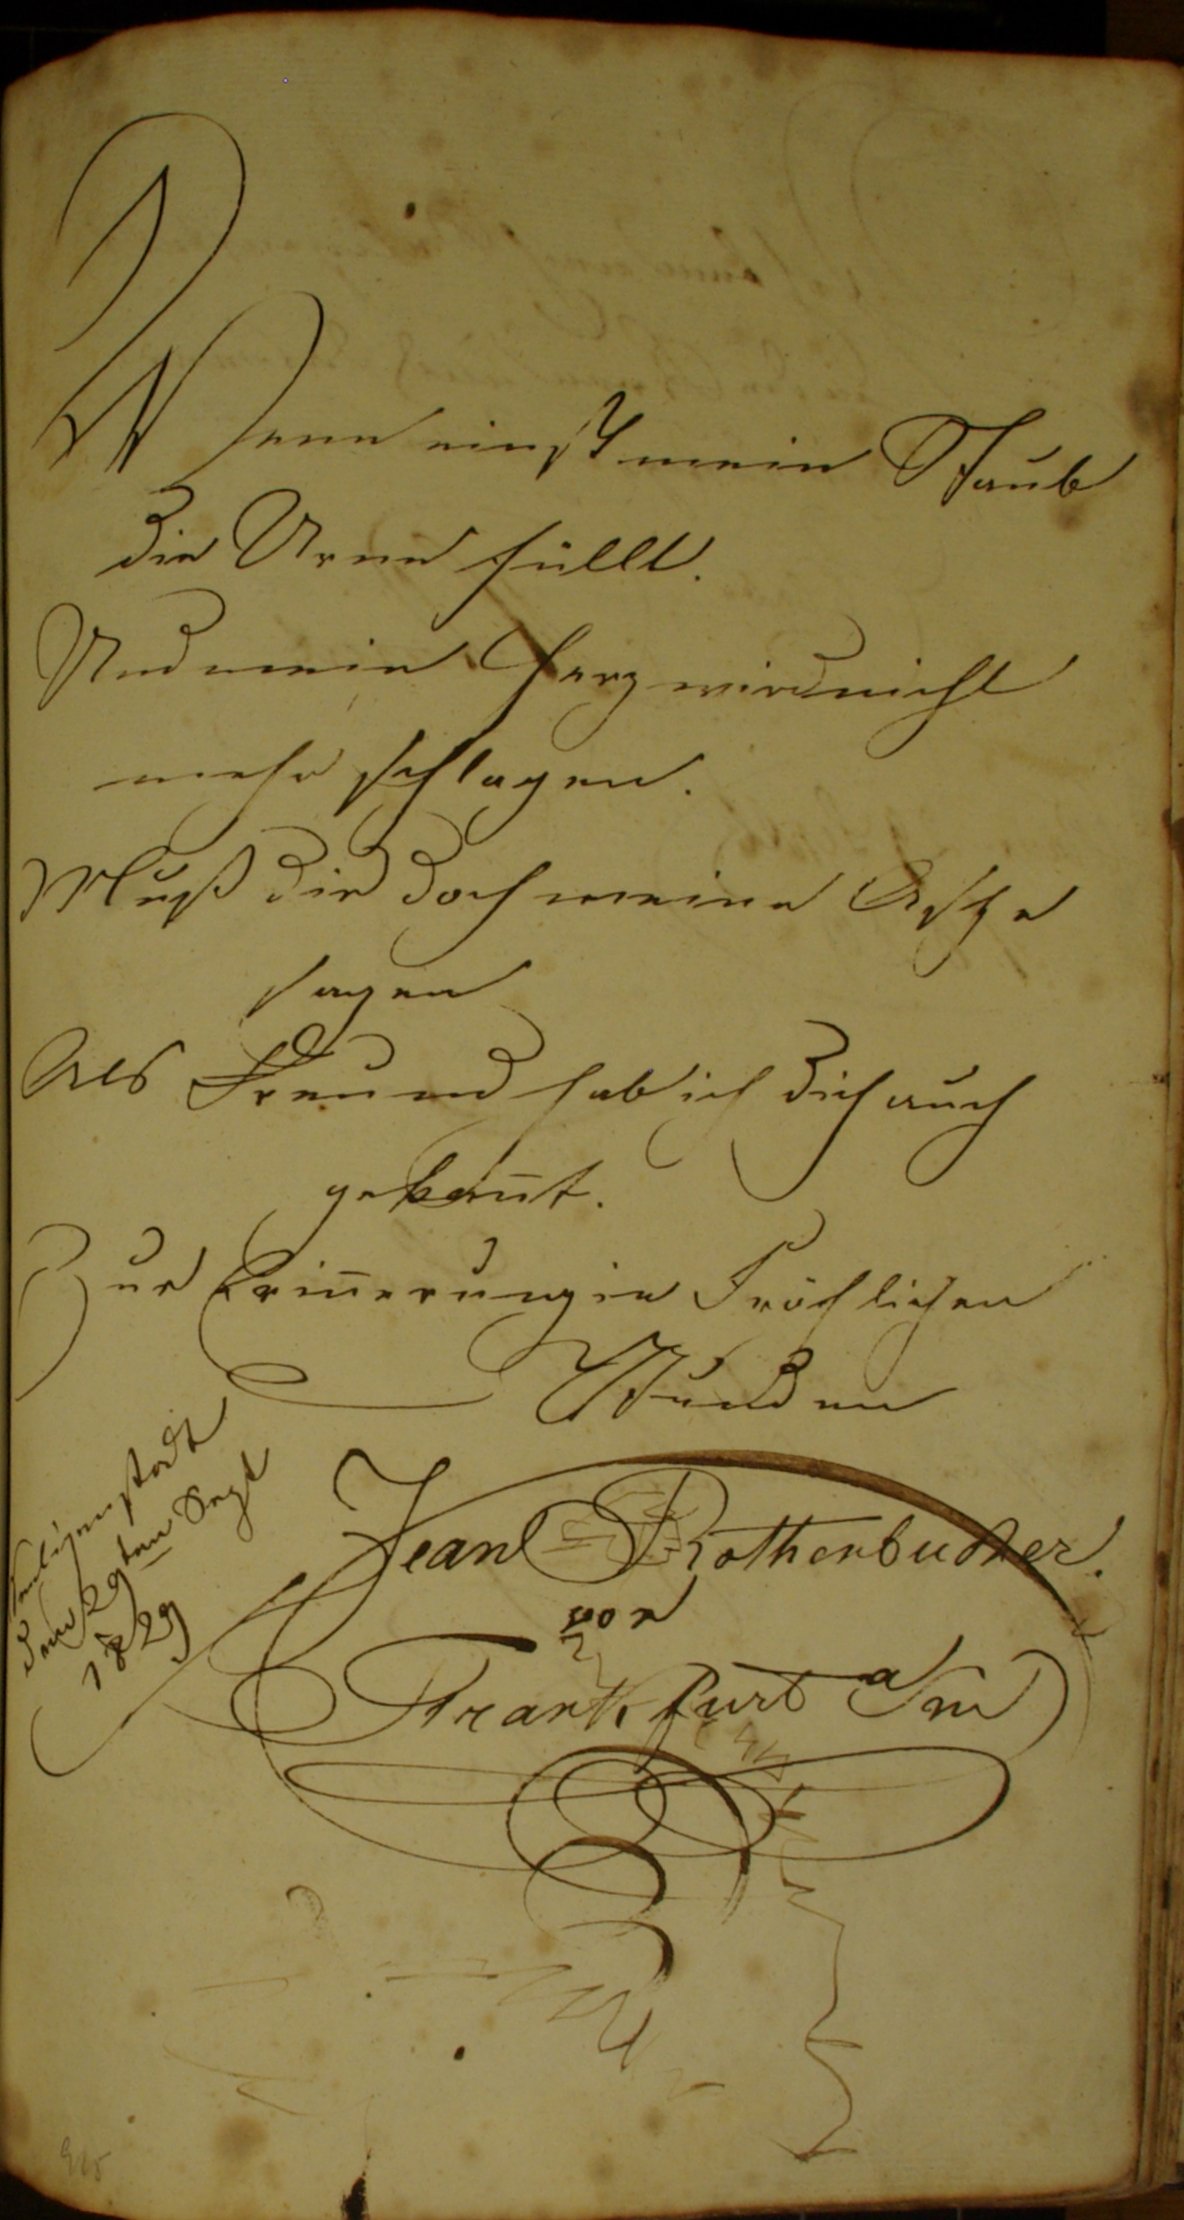 Wenn einst mein Staub
die Urne füllt.
Und mein Herz wird nicht
mehr schlagen.
Muß dir doch meine Asche
sagen
Als Freund hab ich dich auch
gekan̄t.
Zur Erin̄erung in Fröhlichen
Stunden
Jean Rothenbucher.
von
Frankfurt a/m
den 29ten Sept
1829